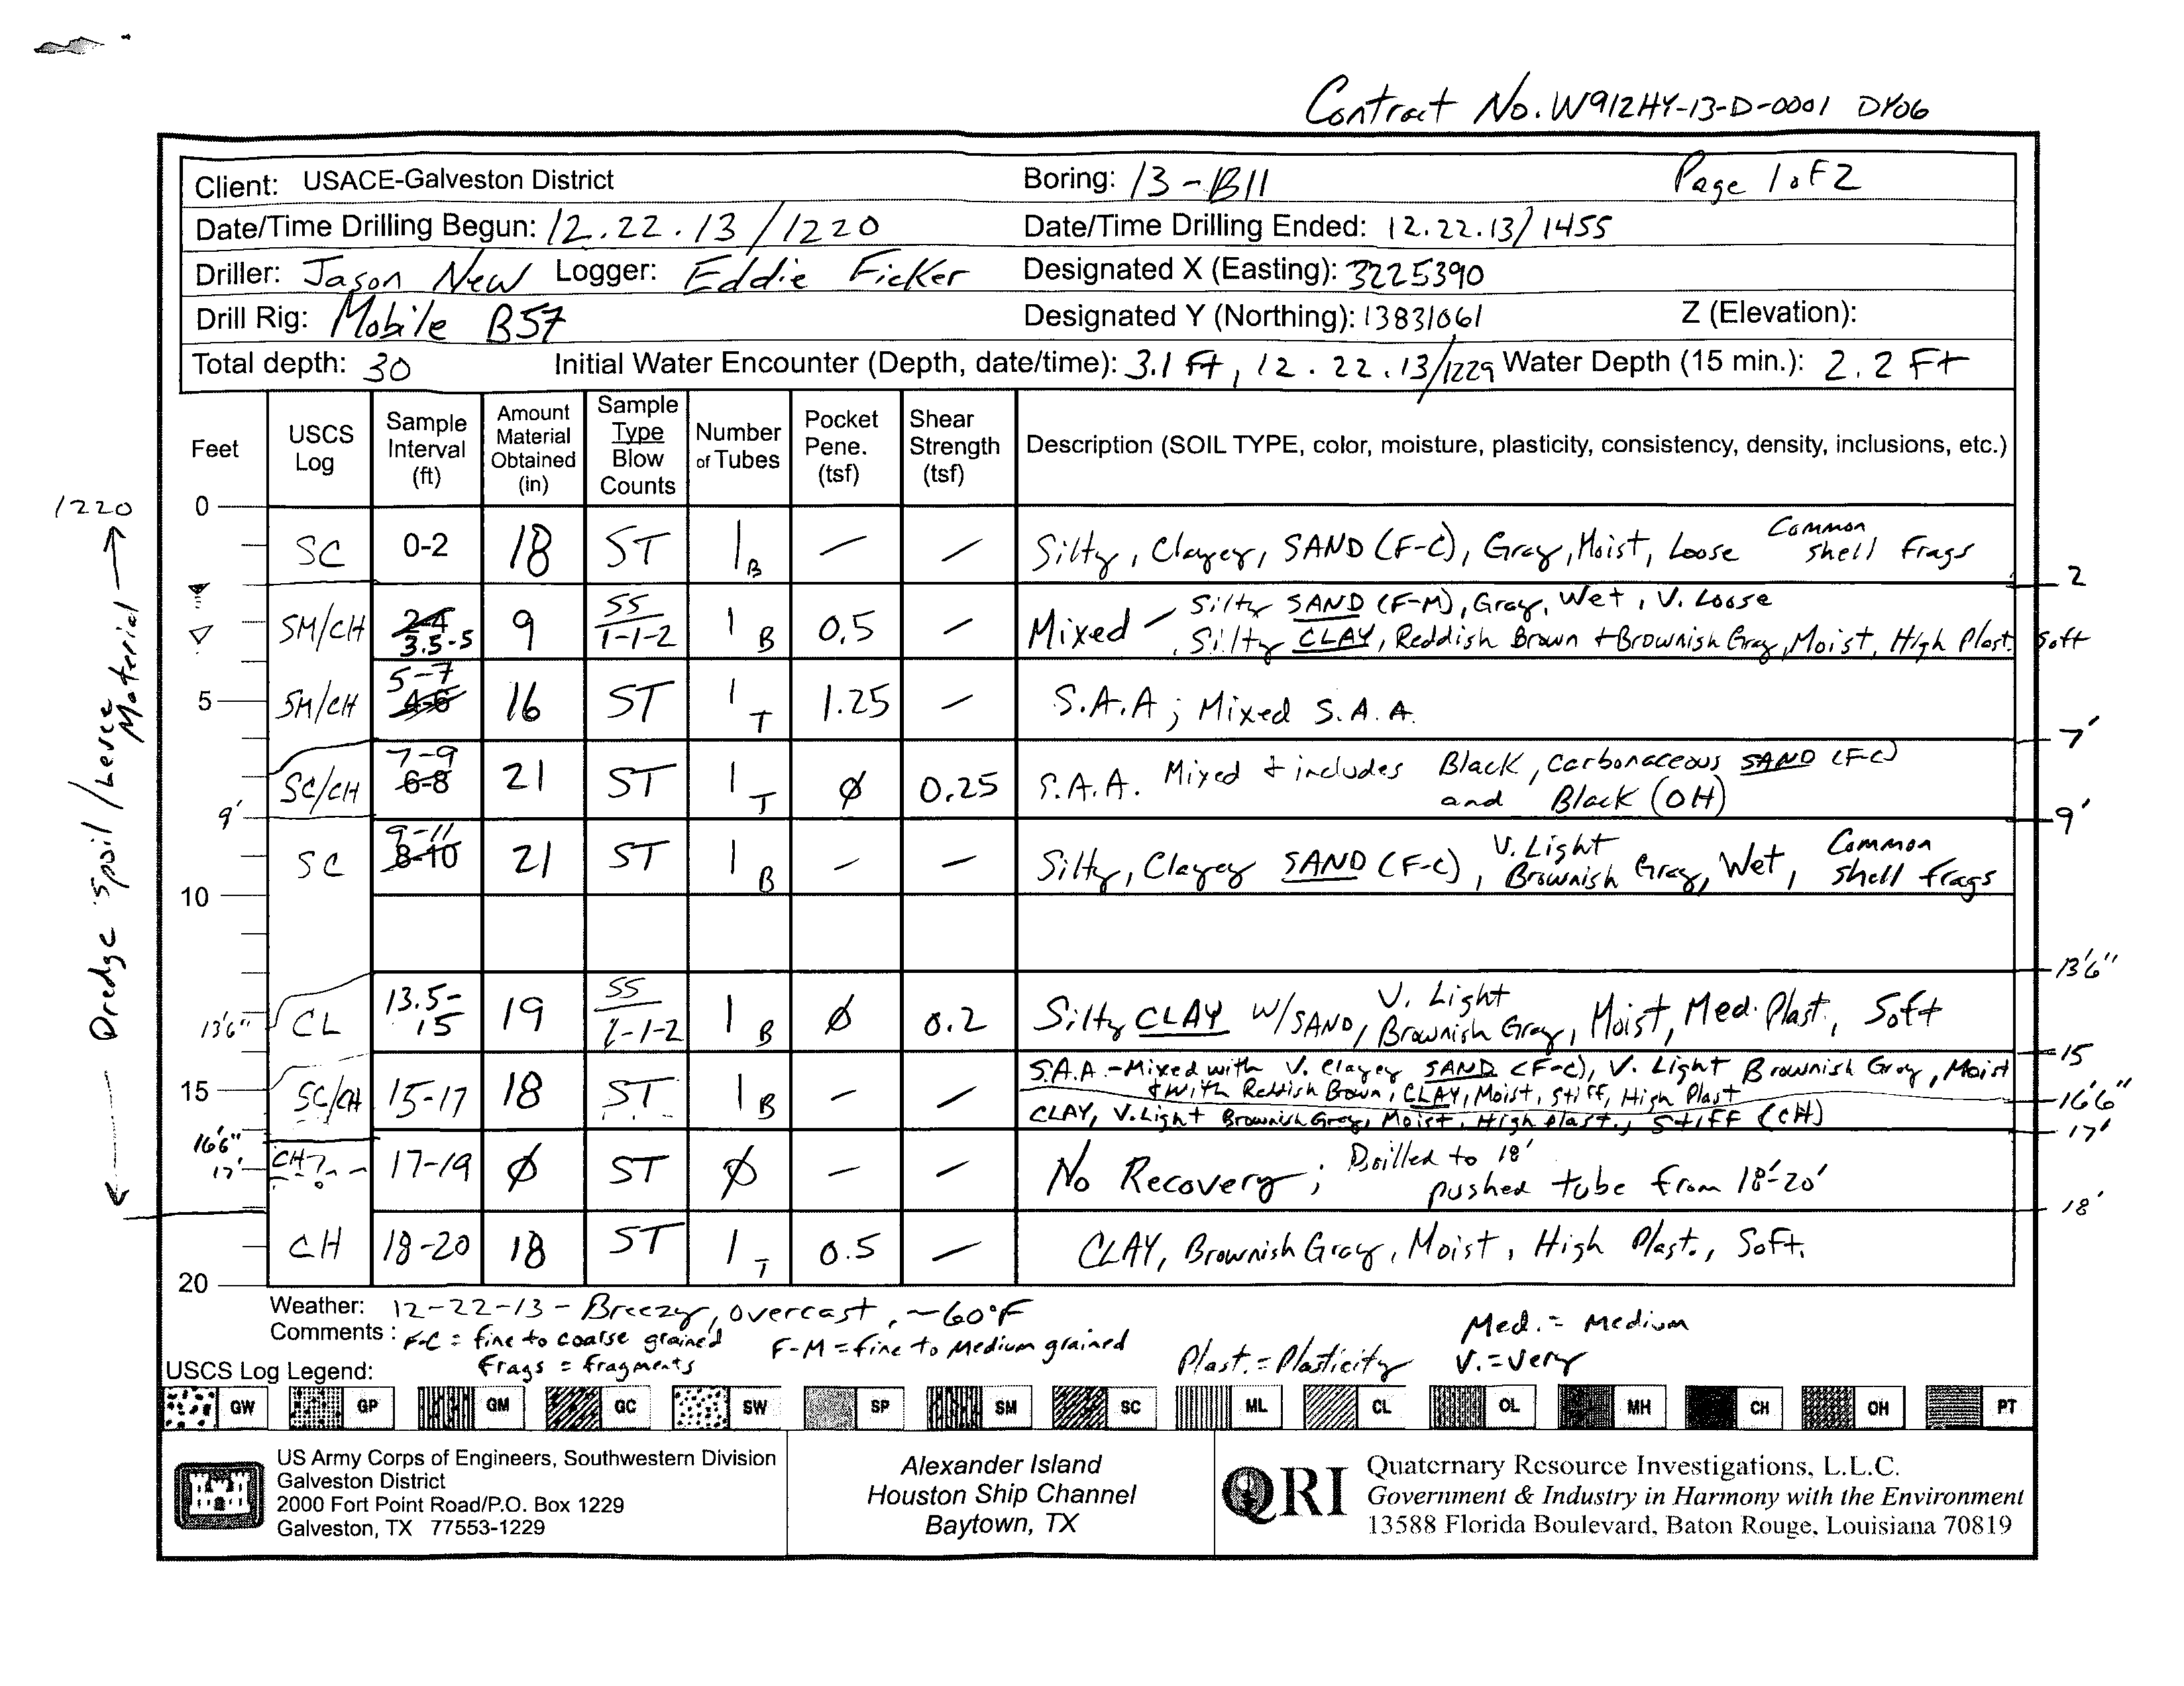 Contract No. W912HY-13-D-0001 DY06
Client: USACE-Galveston District Boring: 13-B11 Page 1 of 2
Date/Time Drilling Begun: 12.22.13/1220 Date/Time Drilling Ended: 12.22.13/1455
Driller: Jason New Logger: Eddie Ficker Designated X (Easting): 3225390
Drill Rig: Mobile B57 Designated Y (Northing): 13831061 Z (Elevation):
Total depth: 30 Initial Water Encounter (Depth, date/time): 3.1 ft, 12.22.13/1229 Water Depth (15 min.): 2.2 Ft
Feet USCS Log Sample Interval (ft) Amount Material Obtained (in) Sample Type Blow Counts Number of Tubes Pocket Pene. (tsf) Shear Strength (tsf) Description (SOIL TYPE, color, moisture, plasticity, consistency, density, inclusions, etc.)
1220
Dredge Spoil/Levee Material
0
SC 0-2 18 ST 1 B — — Silty, Clayey, SAND (F-C), Gray, Moist, Loose Common shell frags
2
SM/CH 2-4 3.5-5 9 SS 1-1-2 1 B 0.5 — Mixed - Silty SAND (F-M), Gray, Wet, V. Loose
Silty CLAY, Reddish Brown + Brownish Gray, Moist, High Plast. Soft
5 SM/CH 5-7 4-6 16 ST 1 T 1.25 — S.A.A; Mixed S.A.A.
7'
SC/CH 7-9 6-8 21 ST 1 T ø 0.25 S.A.A. Mixed + includes Black, Carbonaceous SAND (F-C) and Black (OH)
9' 9'
SC 9-11 8-10 21 ST 1 B — — Silty, Clayey SAND (F-C), V. Light Brownish Gray, Wet, Common shell frags
10
13'6"
13'6" CL 13.5-15 19 SS 1-1-2 1 B ø 0.2 Silty CLAY w/SAND, V. Light Brownish Gray, Moist, Med. Plast., Soft
15
15 SC/CH 15-17 18 ST 1 B — — S.A.A.-Mixed with V. Clayey SAND (F-C), V. Light Brownish Gray, Moist
+ with Reddish Brown, CLAY, Moist, Stiff, High Plast
16'6"
CLAY, V. Light Brownish Gray, Moist, High plast., STIFF (CH)
16'6" 17'
17' CH? 17-19 ø ST ø — — No Recovery; Drilled to 18' pushed tube from 18'-20'
18'
CH 18-20 18 ST 1 T 0.5 — CLAY, Brownish Gray, Moist, High Plast., Soft.
20
Weather: 12-22-13 - Breezy, overcast, ~60°F
Comments: F-C = fine to coarse grained F-M = fine to Medium grained Med. = Medium
frags = fragments Plast. = Plasticity V. = Very
USCS Log Legend:
GW GP GM GC SW SP SM SC ML CL OL MH CH OH PT
US Army Corps of Engineers, Southwestern Division
Galveston District
2000 Fort Point Road/P.O. Box 1229
Galveston, TX 77553-1229
Alexander Island
Houston Ship Channel
Baytown, TX
QRI
Quaternary Resource Investigations, L.L.C.
Government & Industry in Harmony with the Environment
13588 Florida Boulevard, Baton Rouge, Louisiana 70819